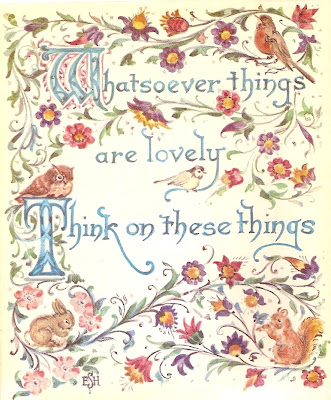 Whatsoever things
are lovely
Think on these things
ESH